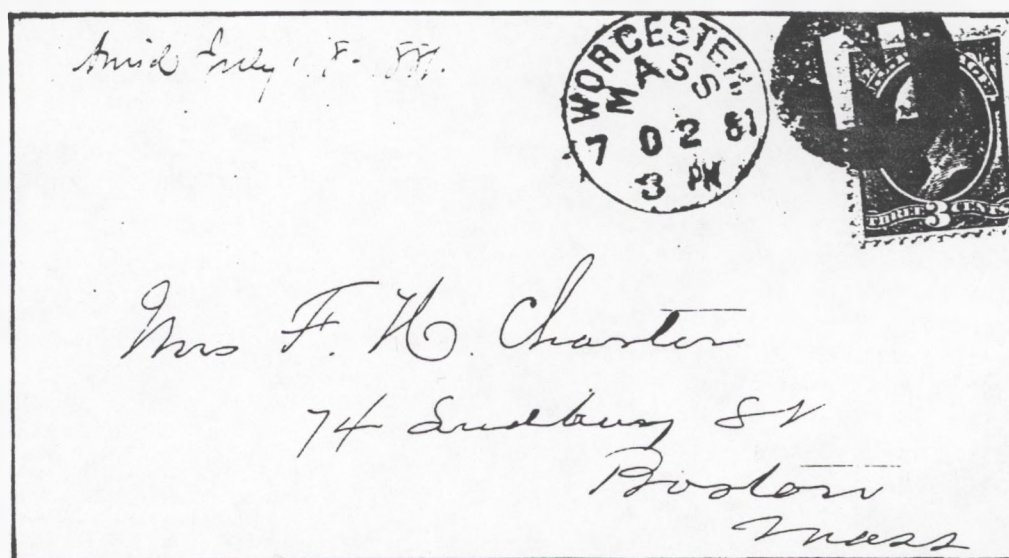 July 8 - 81.
WORCESTER
MASS
7 02 81
3 PM
THREE 3 CENTS
Mrs F. H. Charter
74 Sudbury St
Boston
Mass